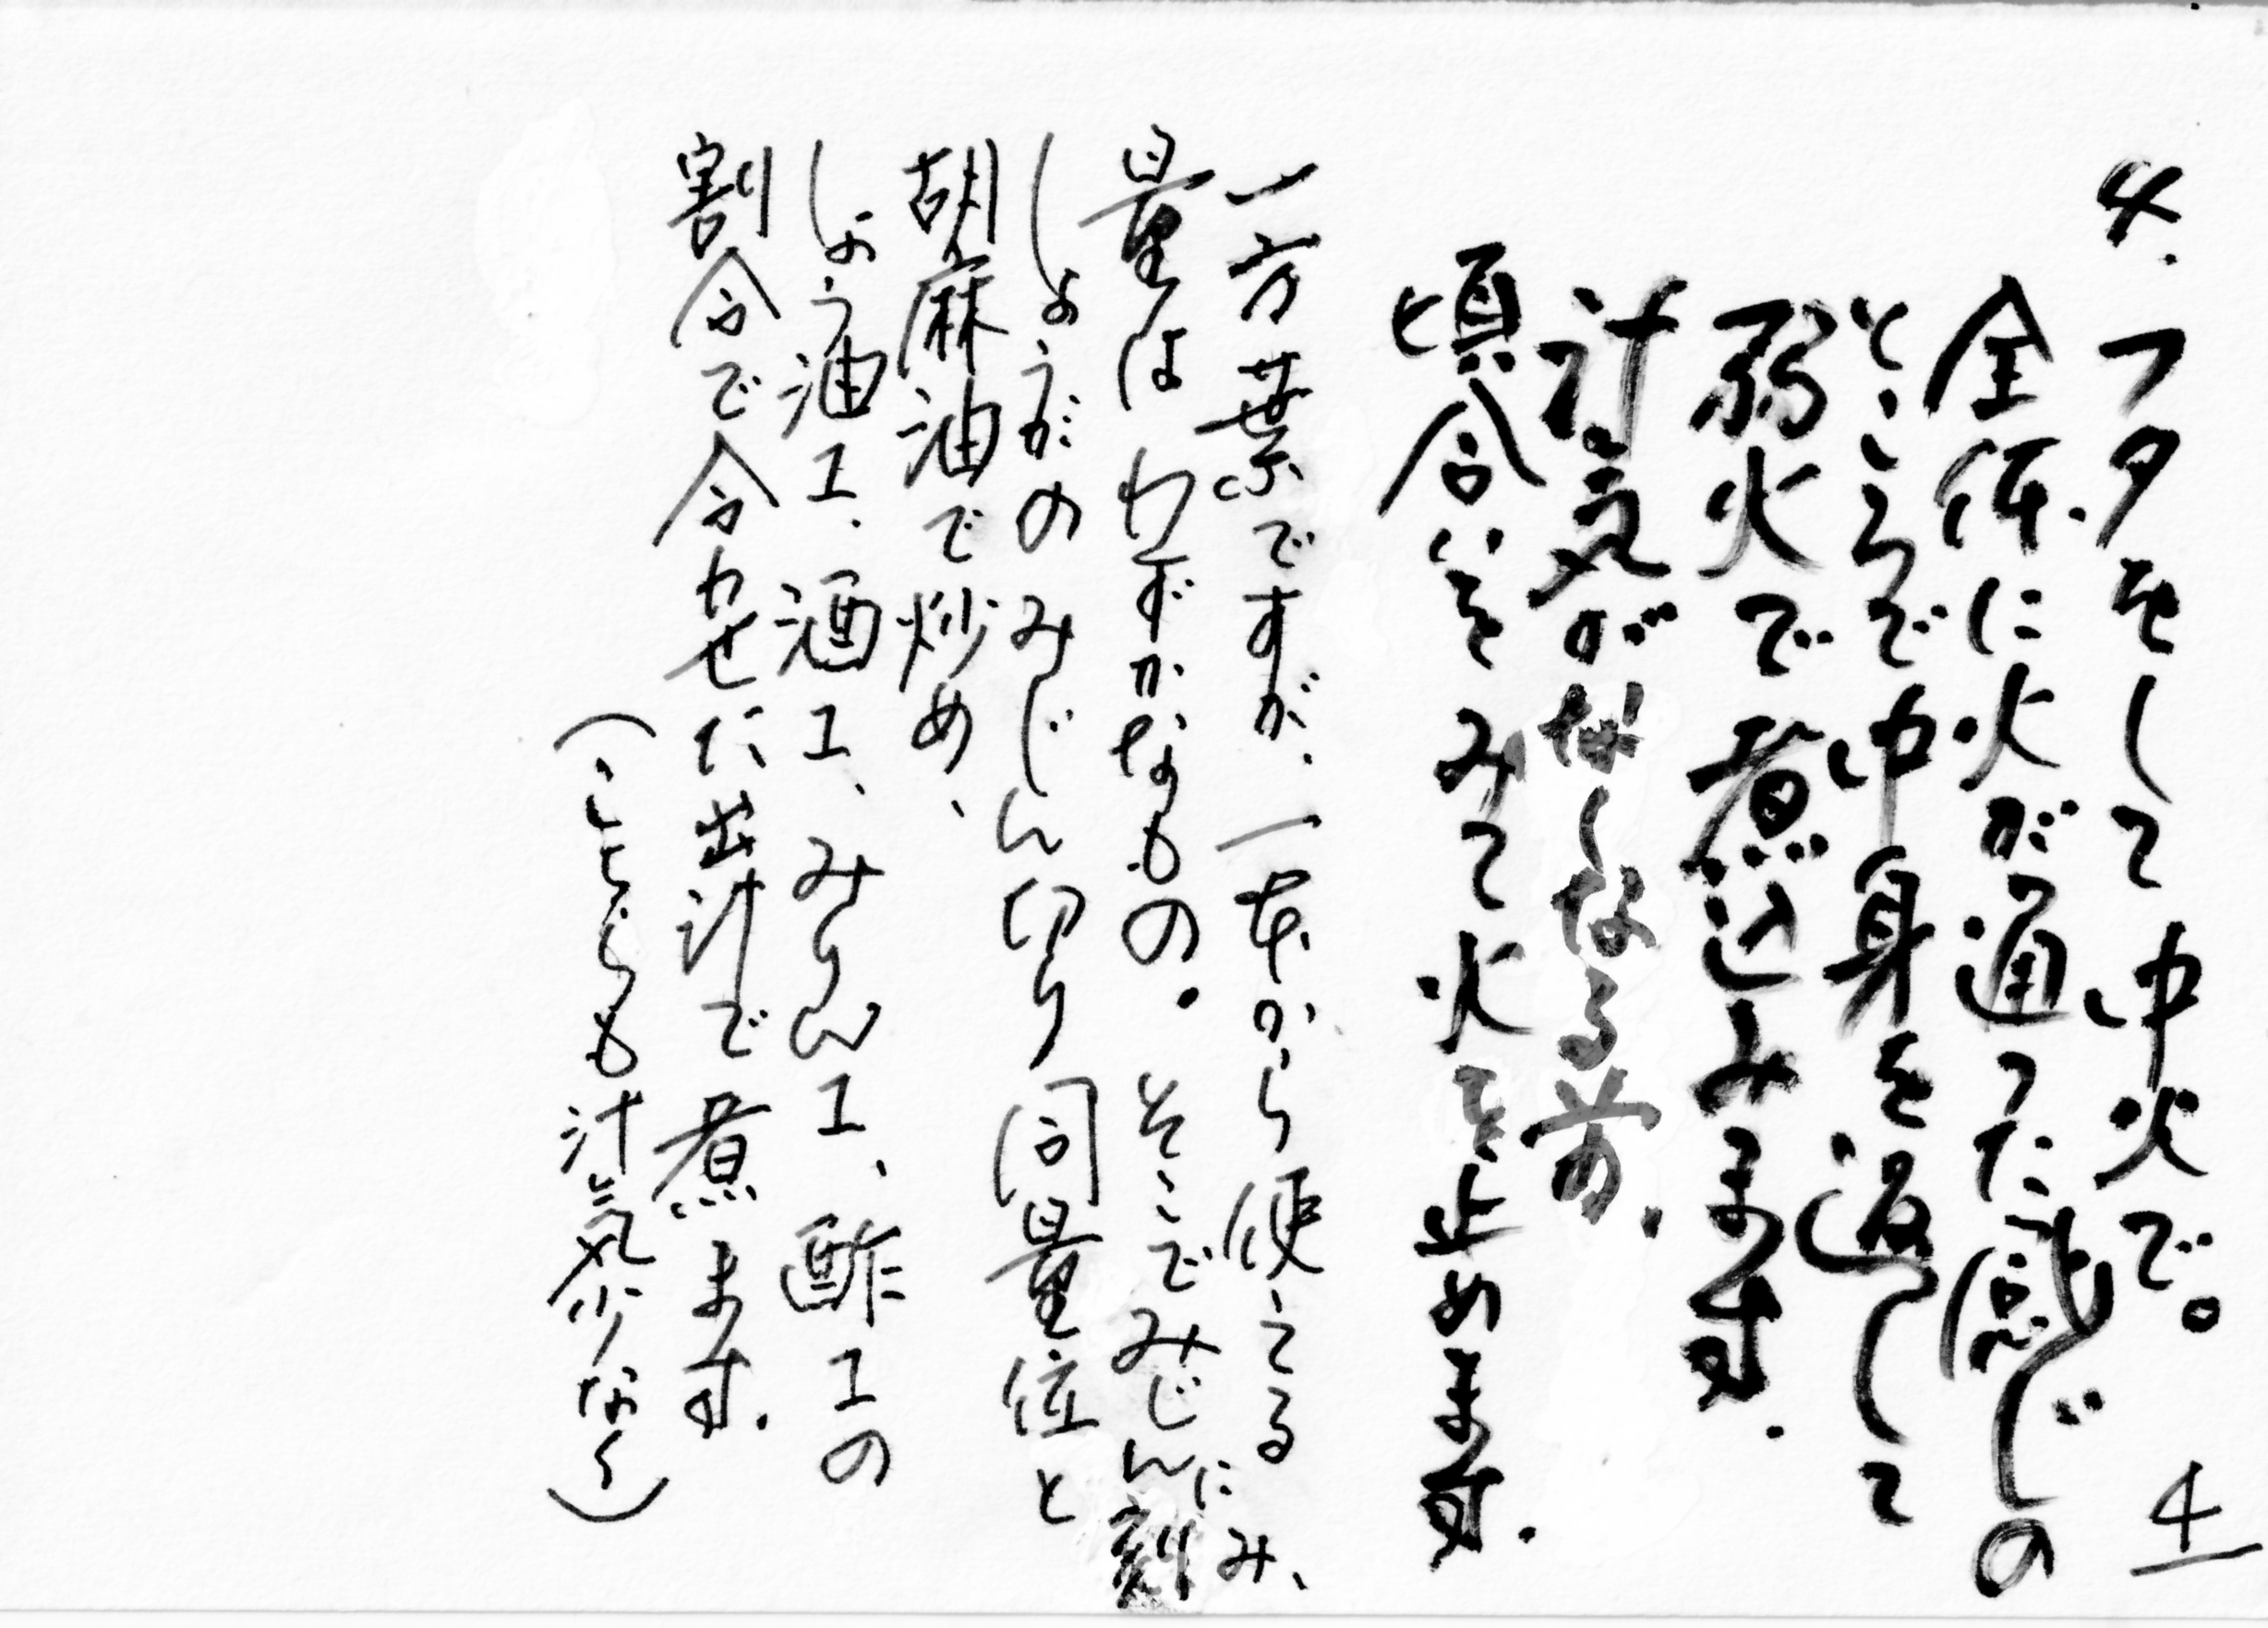 4.フタをして中火で。
全体に火が通った感じの
ところで中身を返して
弱火で煮込みます.
汁気がなくなる前.
頃合いをみて火を止めます.
一方葉ですが、一本から使える
量はわずかなもの。そこでみじんに刻み、
しょうがのみじん切り同量位と
胡麻油で炒め、
しょう油1、酒1、みりん1、酢1の
割合で合わせた出汁で煮ます.
(こちらも汁気少なく)
4